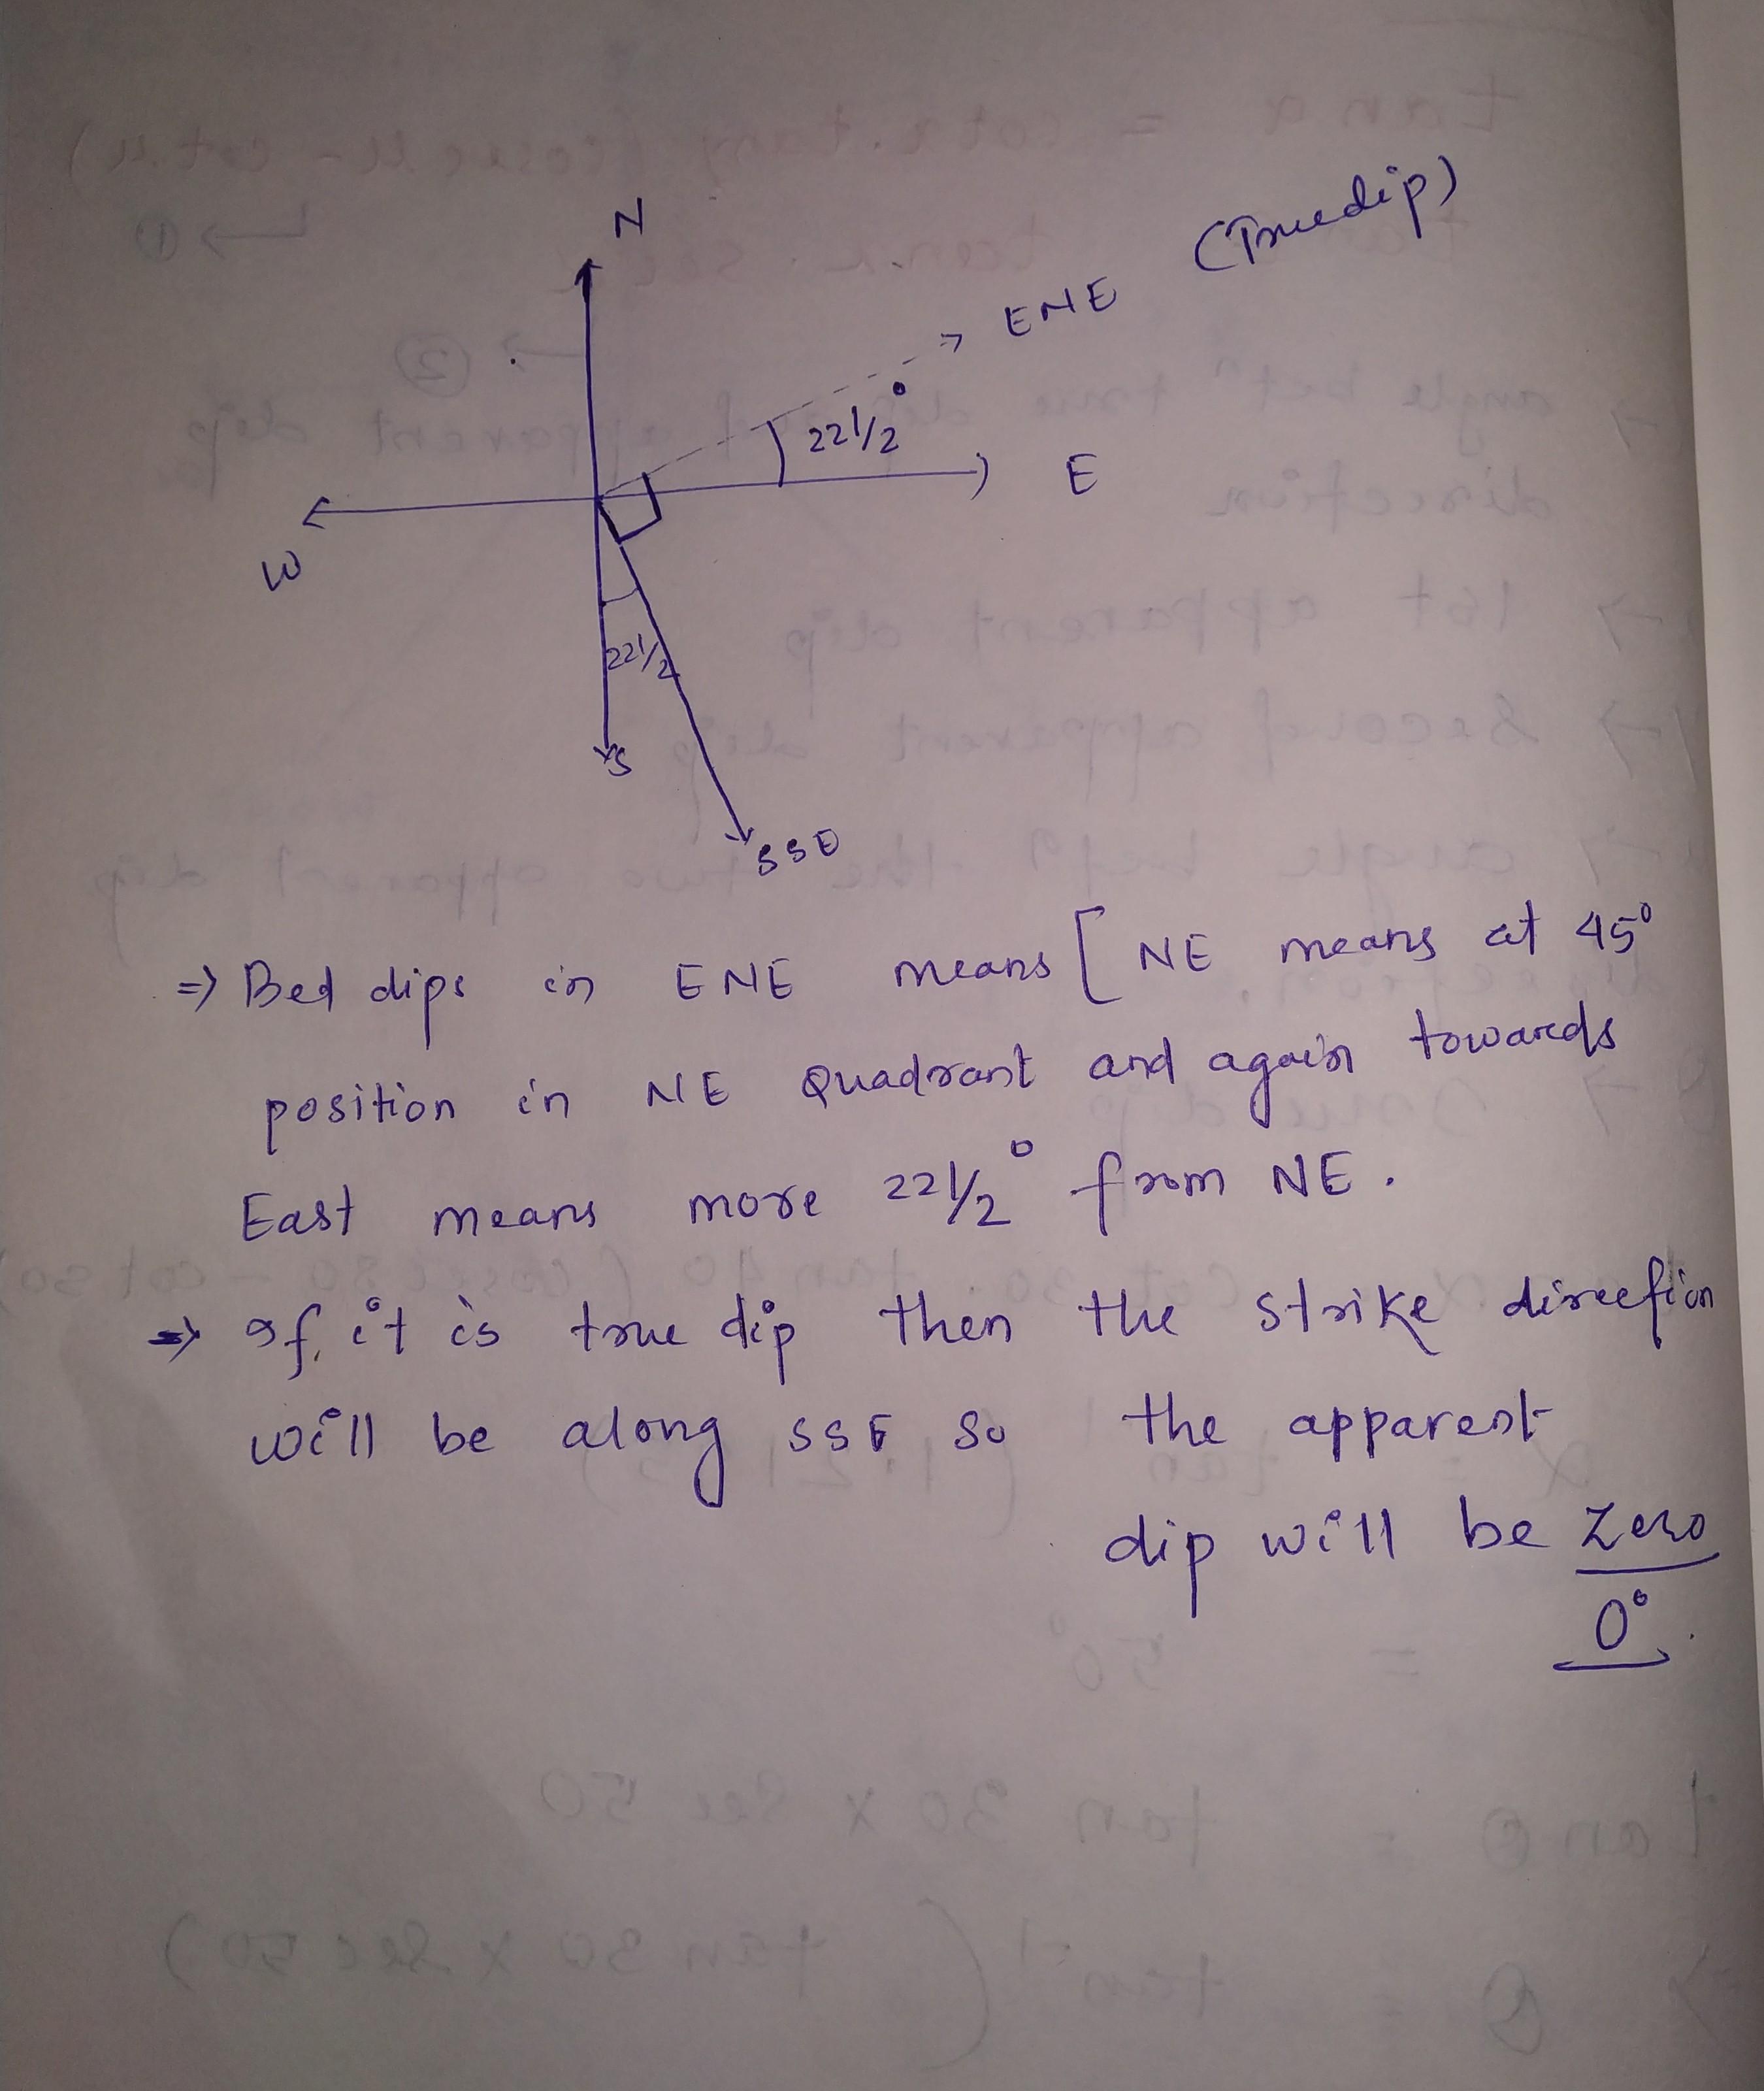 N
(True dip)
ENE
22 1/2°
E
W
22 1/2
S
SSE
⇒ Bed dips in ENE means [ NE means at 45°
position in NE Quadrant and again towards
East means more 22 1/2° from NE.
⇒ If it is true dip then the strike direction
will be along SSE so the apparent
dip will be Zero
0°